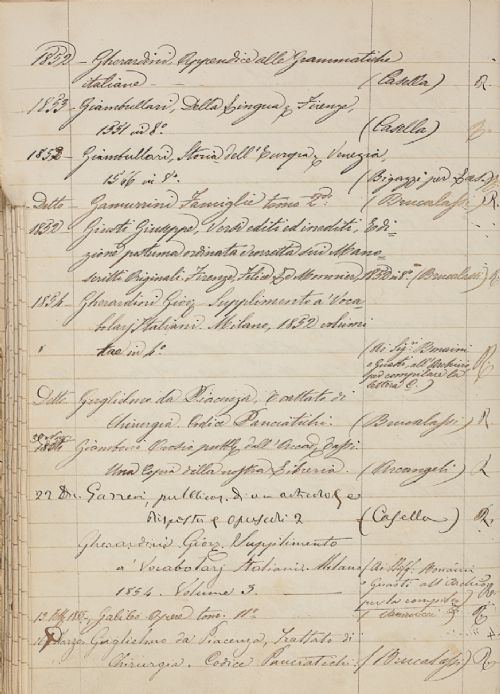 1852 - Gherardini Appendice alle Grammatiche
italiane - (Casella) R.
1853 - Giambullari, Della Lingua, Firenze,
1551 in 8.° (Casella) R
1852 - Giambullari, Storia dell'Europa, Venezia,
1566 in 8.° (Bigazzi per
Detto - Gamurrini Famiglie tomo 2.do (Brucalassi) R.
1852 Giusti Giuseppe, Versi editi ed inediti, Edi-
zione postuma ordinata e corretta sui Mano-
scritti Originali, Firenze, Felice Le Monnier, 1852 in 8.° (Brucalassi) R
1854 Gherardini Giov. Supplimento a' Voca-
bolarj Italiani Milano, 1852 volumi
tre in 4.° (Ai Sig.i Bonaini
e Guasti, all'Archivio
per compilare la
lettera C.) R
Detto Guglielmo da Piacenza, Trattato di
Chirurgia Codice Panciatichi. (Brucalassi) R.
1854 Giambullari
Una Copia della nostra Libreria. (Arcangeli) R
22 D.
risposta e opuscoli 2 (Casella) R.
Gherardini Giov. Supplimento
a' Vocabolarj Italiani. Milano (Ai Sigg. Bonaini
1854. Volume 3. e Guasti all'Archivio
per la R.
Galileo Opere tom. 11.° R
Guglielmo da Piacenza, Trattato di
Chirurgia. Codice Panciatichi (Brucalassi) R